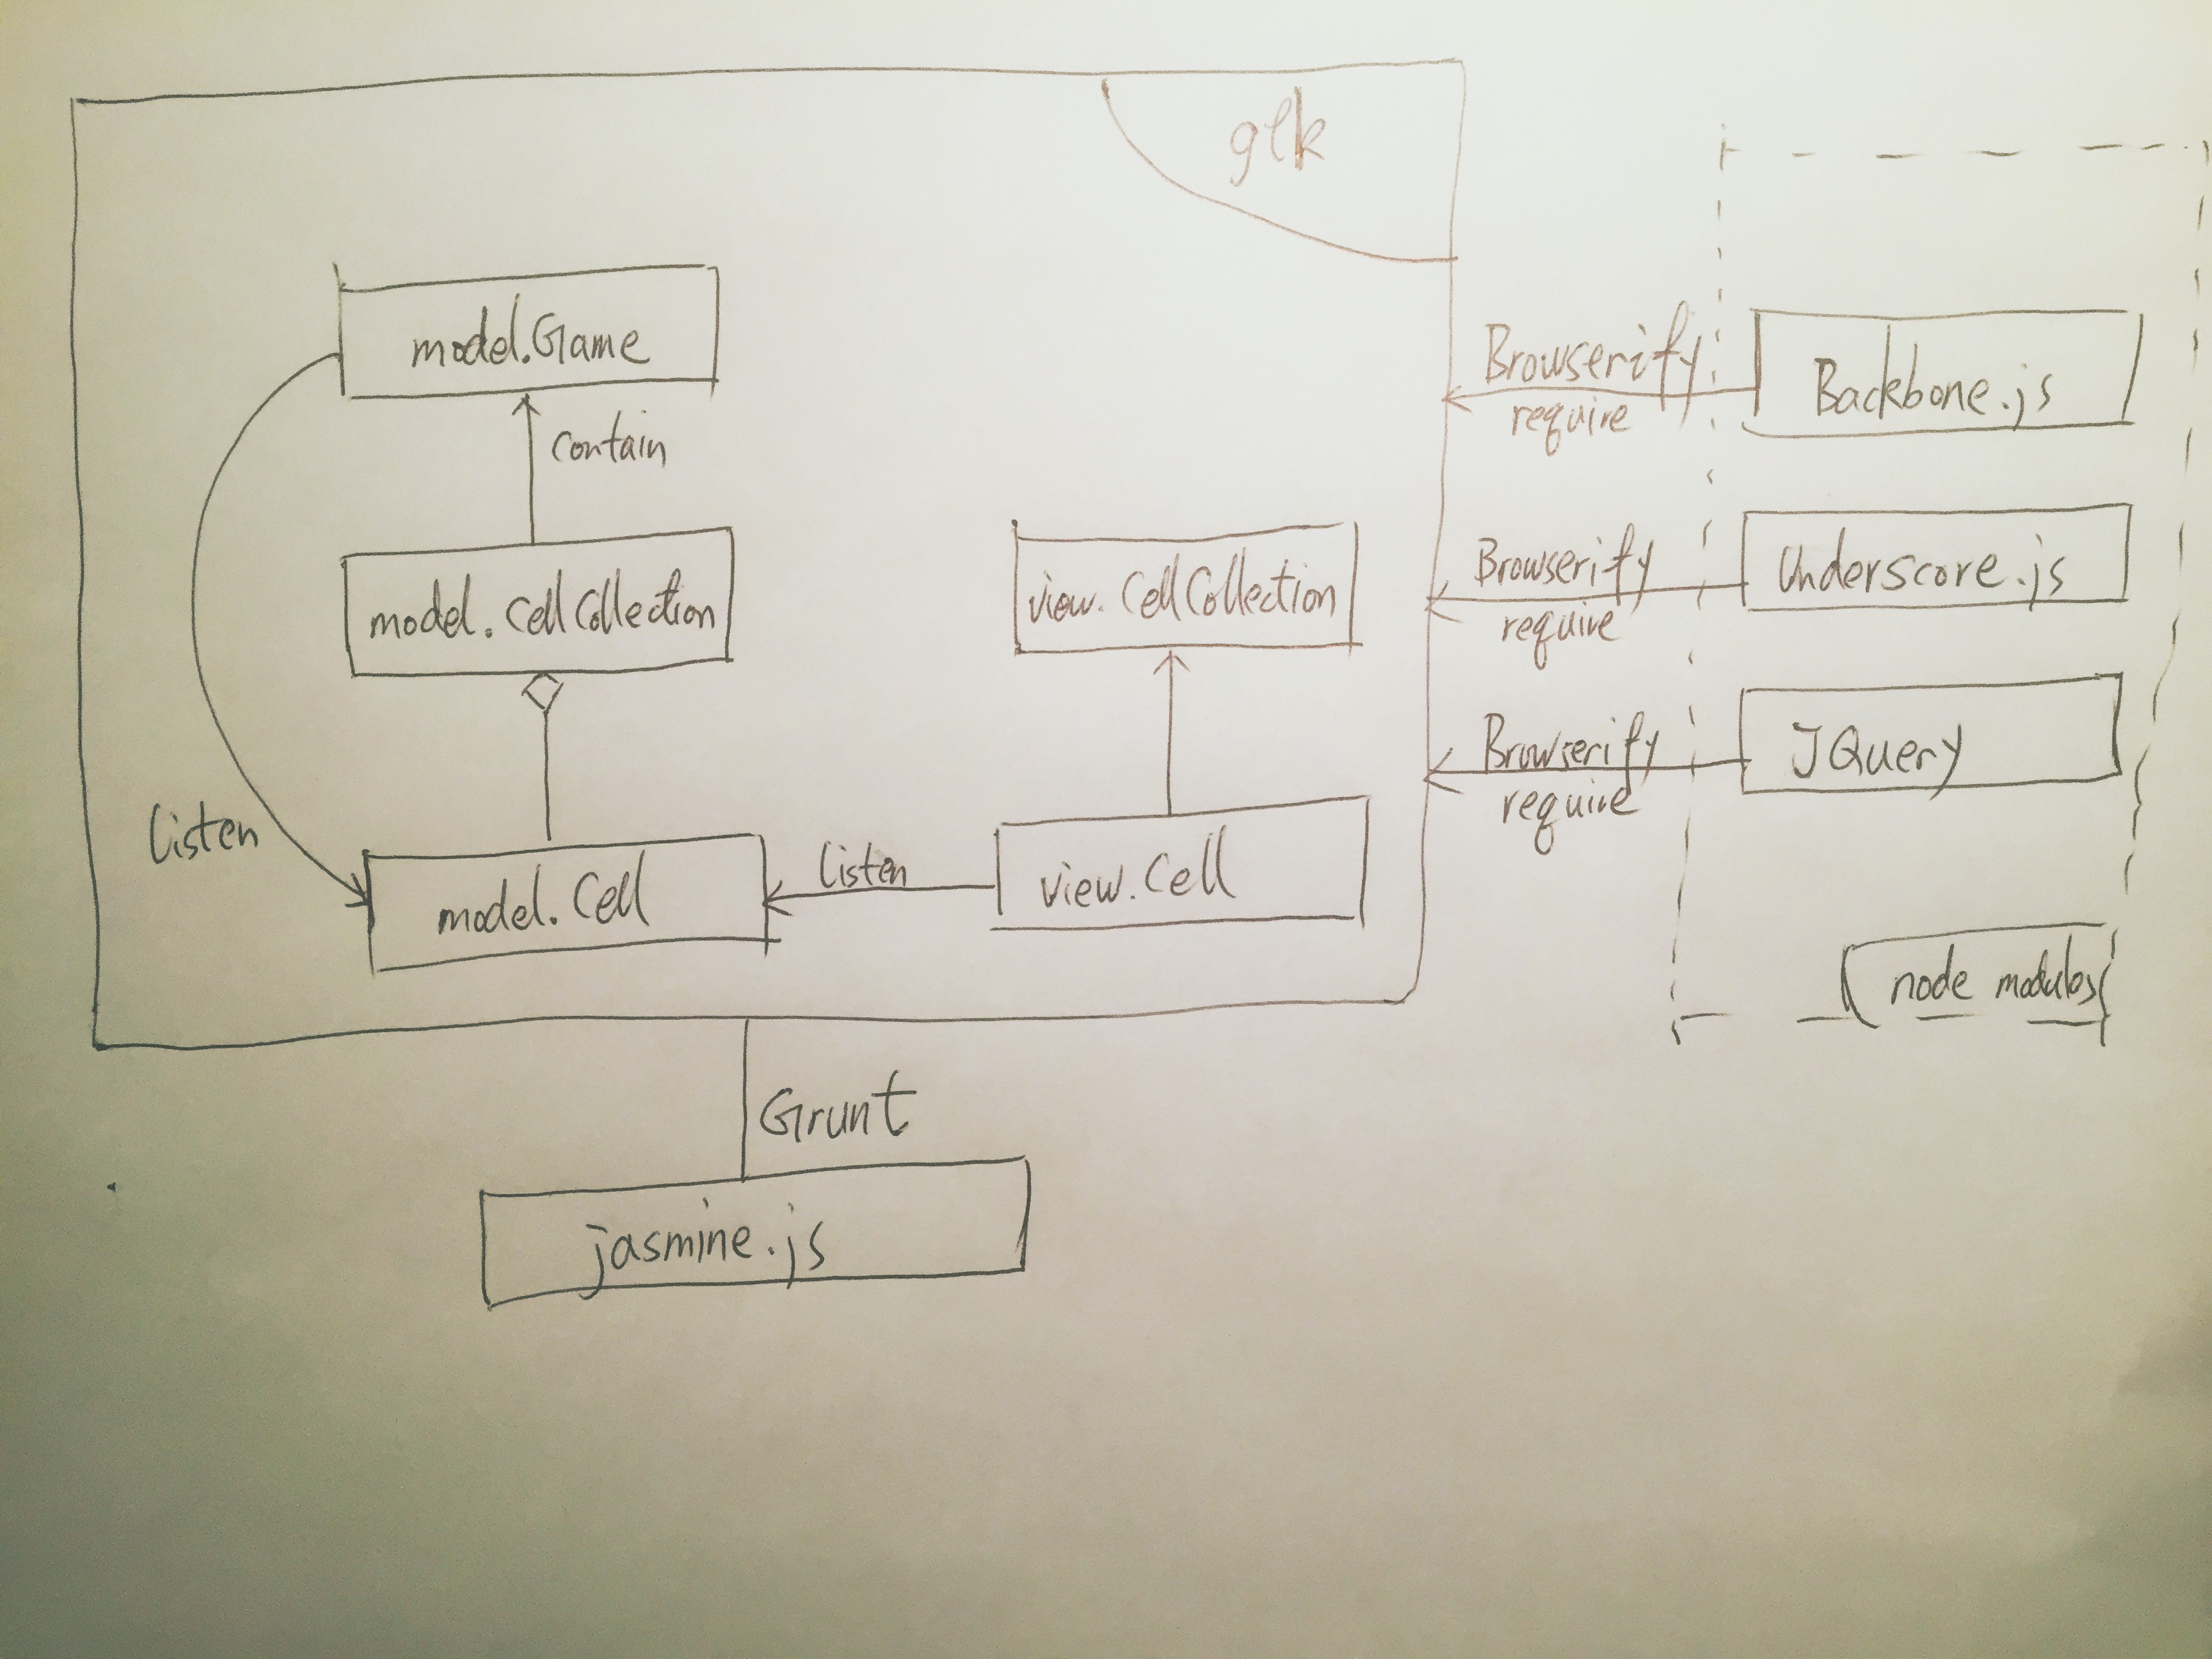 glk
model.Game
contain
model.CellCollection
view.CellCollection
Listen
model.Cell
Listen
view.Cell
Browserify
require
Backbone.js
Browserify
require
Underscore.js
Browserify
require
JQuery
node modules
Grunt
jasmine.js